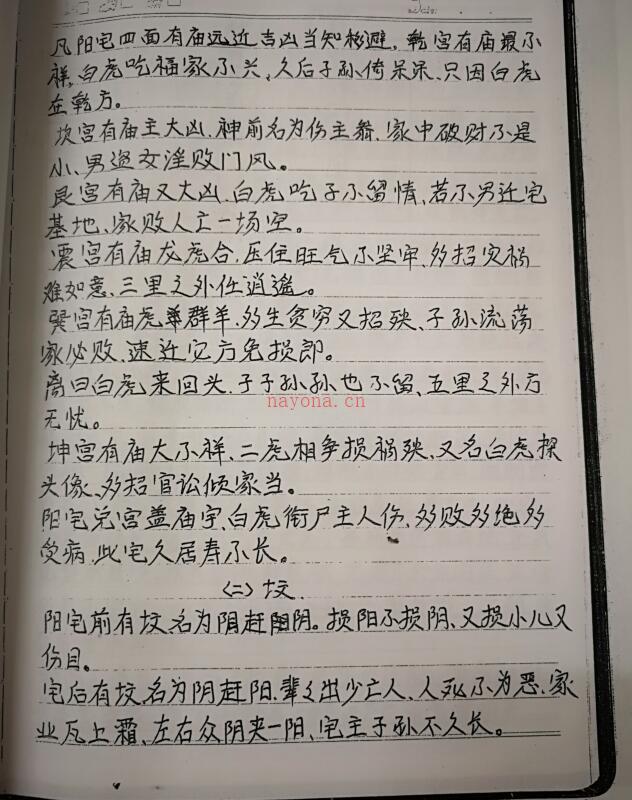 凡阳宅四面有庙远近吉凶当知移避,乾宫有庙最不
祥,白虎吃福家不兴,久后子孙倚呆呆,只因白虎
在乾方。
坎宫有庙主大凶,神前名为伤主翁,家中破财不是
小、男盗女淫败门风。
艮宫有庙又大凶,白虎吃子不留情、若不另迁宅
基地、家败人亡一场空。
震宫有庙龙虎合,压住旺气不坚牢、多招灾祸
难如意、三里之外任逍遥。
巽宫有庙虎奔群羊、多生贫穷又招殃、子孙流荡
家必败、速迁它方免损郎。
离曰白虎来回头、子子孙孙也不留、五里之外方
无忧。
nayona.cn
坤宫有庙大不祥、二虎相争损祸殃、又名白虎探
头像、多招官讼倾家当。
阳宅兑宫盖庙宇、白虎衔尸主人伤、多败多绝多
受病,此宅久居寿不长。
(二)坟
阳宅前有坟,名为阴赶阳阴。损阳不损阴、又损小儿又
伤目。
宅后有坟,名为阴赶阳、辈々出少亡人、人死不为恶、家
业瓦上霜、左右众阴夹一阳、宅主子孙不久长。